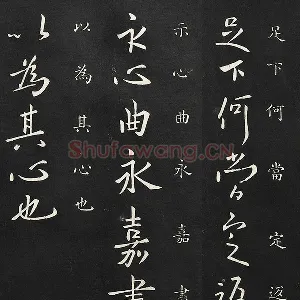 足下何當定返
足下何當定返
示心曲永嘉書
永心曲永嘉書
以為其心也
以為其心也
Shufawang.CN